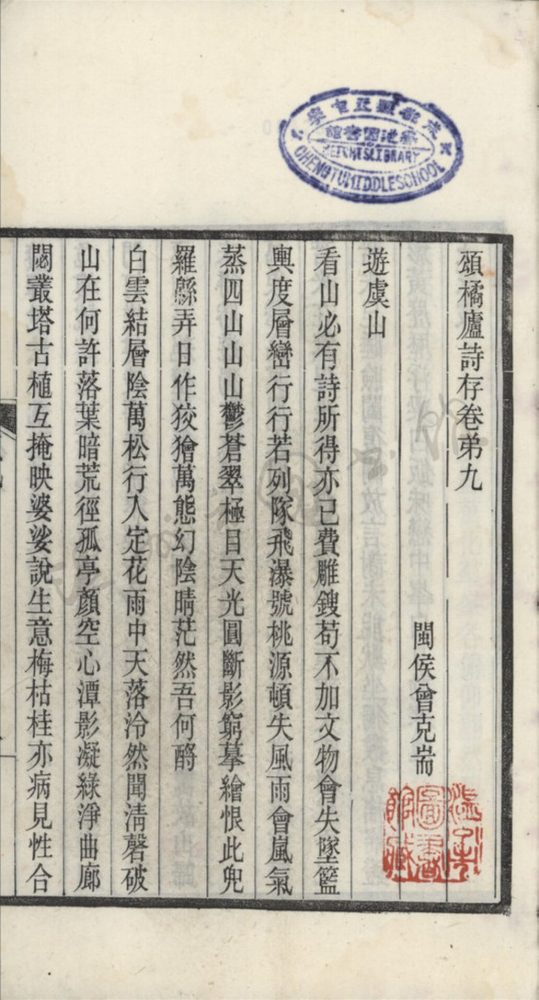 頌橘廬詩存卷弟九
閩侯曾克耑
遊虞山
看山必有詩所得亦已費雕鎪苟不加文物會失墜籃
輿度層巒行行若列隊飛瀑號桃源頓失風雨會嵐氣
蒸四山山山鬱蒼翠極目天光圓斷影窮摹繪恨此兜
羅緜弄日作狡獪萬態幻陰晴茫然吾何酹
白雲結層陰萬松行入定花雨中天落泠然聞淸磬破
山在何許落葉暗荒徑孤亭顏空心潭影凝綠淨曲廊
閟叢塔古植互掩映婆娑說生意梅枯桂亦病見性合
CHENGTU MIDDLE SCHOOL
LIBRARY
圖書
館藏